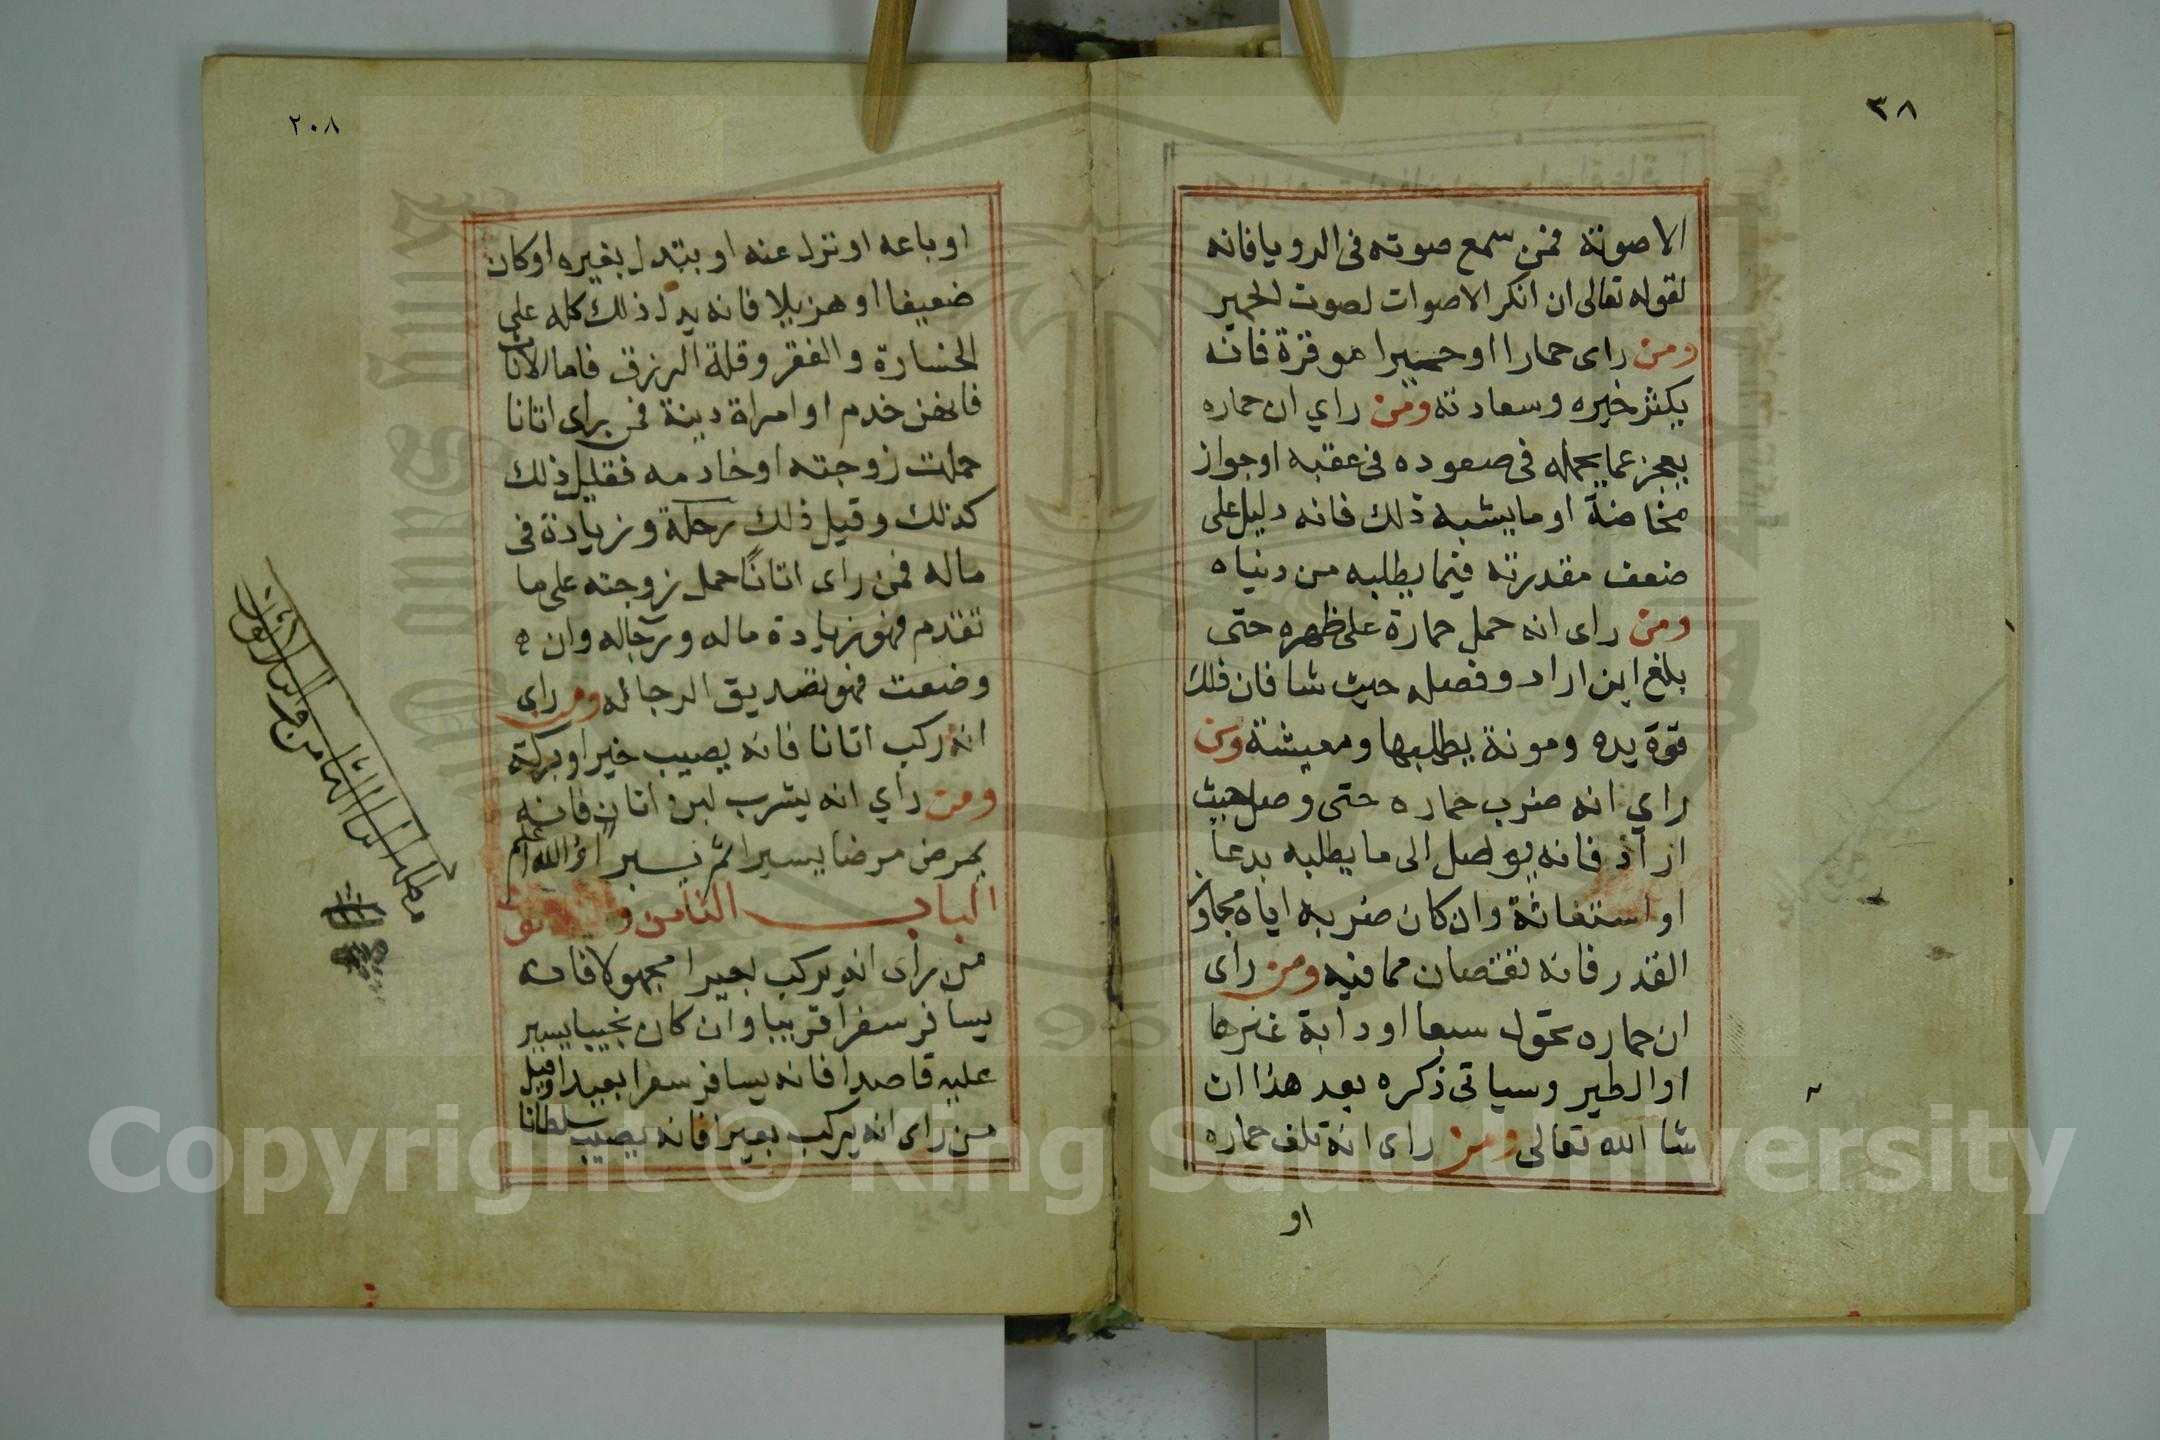 ٣٨
الا صوته فمن سمع صوته فى الرويا فانه
لقوله تعالى ان انكر الاصوات لصوت الحمير
ومن راى حمارا او حميرا موقرة فانه
يكثر خيره وسعادته ومن راي ان حماره
يعجز عما يحمله فى صعوده فى عقبه او جواز
مخاضة او ما يشبه ذلك فانه دليل على
ضعف مقدرته فيما يطلبه من دنياه
ومن راى انه حمل حماره على ظهره حتى
بلغ اين اراد وفصله حيث شا فان ذلك
قوة يده ومونة يطلبها ومعيشة ومن
راي انه ضرب حماره حتى وصل حيث
اراد فانه يوصل الى ما يطلبه بدعا
او استغاثة وان كان ضربه اياه مجاوز
القدر فانه نقصان مما فيه ومن راى
ان حماره تحول سبعا او دابة غيرها
او الطير وسياتى ذكره بعد هذا ان
شا الله تعالى ومن راى انه تلف حماره
او
٢٠٨
او باعه او نزل عنه او يتبدل بغيره او كان
ضعيفا او هزيلا فانه يدل ذلك كله على
الخسارة والفقر وقلة الرزق فاما الاناث
فانهن خدم او امراة دينة فمن راى اتانا
حملت زوجته او خادمه فقليل ذلك
كذلك وقيل ذلك رحلة وزيادة فى
ماله فمن راى اتانًا حمل زوجته على ما
تقدم فهو زيادة ماله ورجاله وان
وضعت فهو تصديق الرجا له ومن راى
انه ركب اتانا فانه يصيب خيرا وبركة
ومن راي انه يشرب لبن اتان فانه
يمرض مرضا يسيرا ثم يبر والله اعلم
الباب الثامن و
من راى انه يركب بعيرا مجهولا فانه
يسافر سفرا قريبا وان كان نجيبا يسير
عليه قاصدا فانه يسافر سفرا بعيدا وقيل
من راى انه يركب بعيرا فانه يصيب سلطانا
Copyright © King Saud University